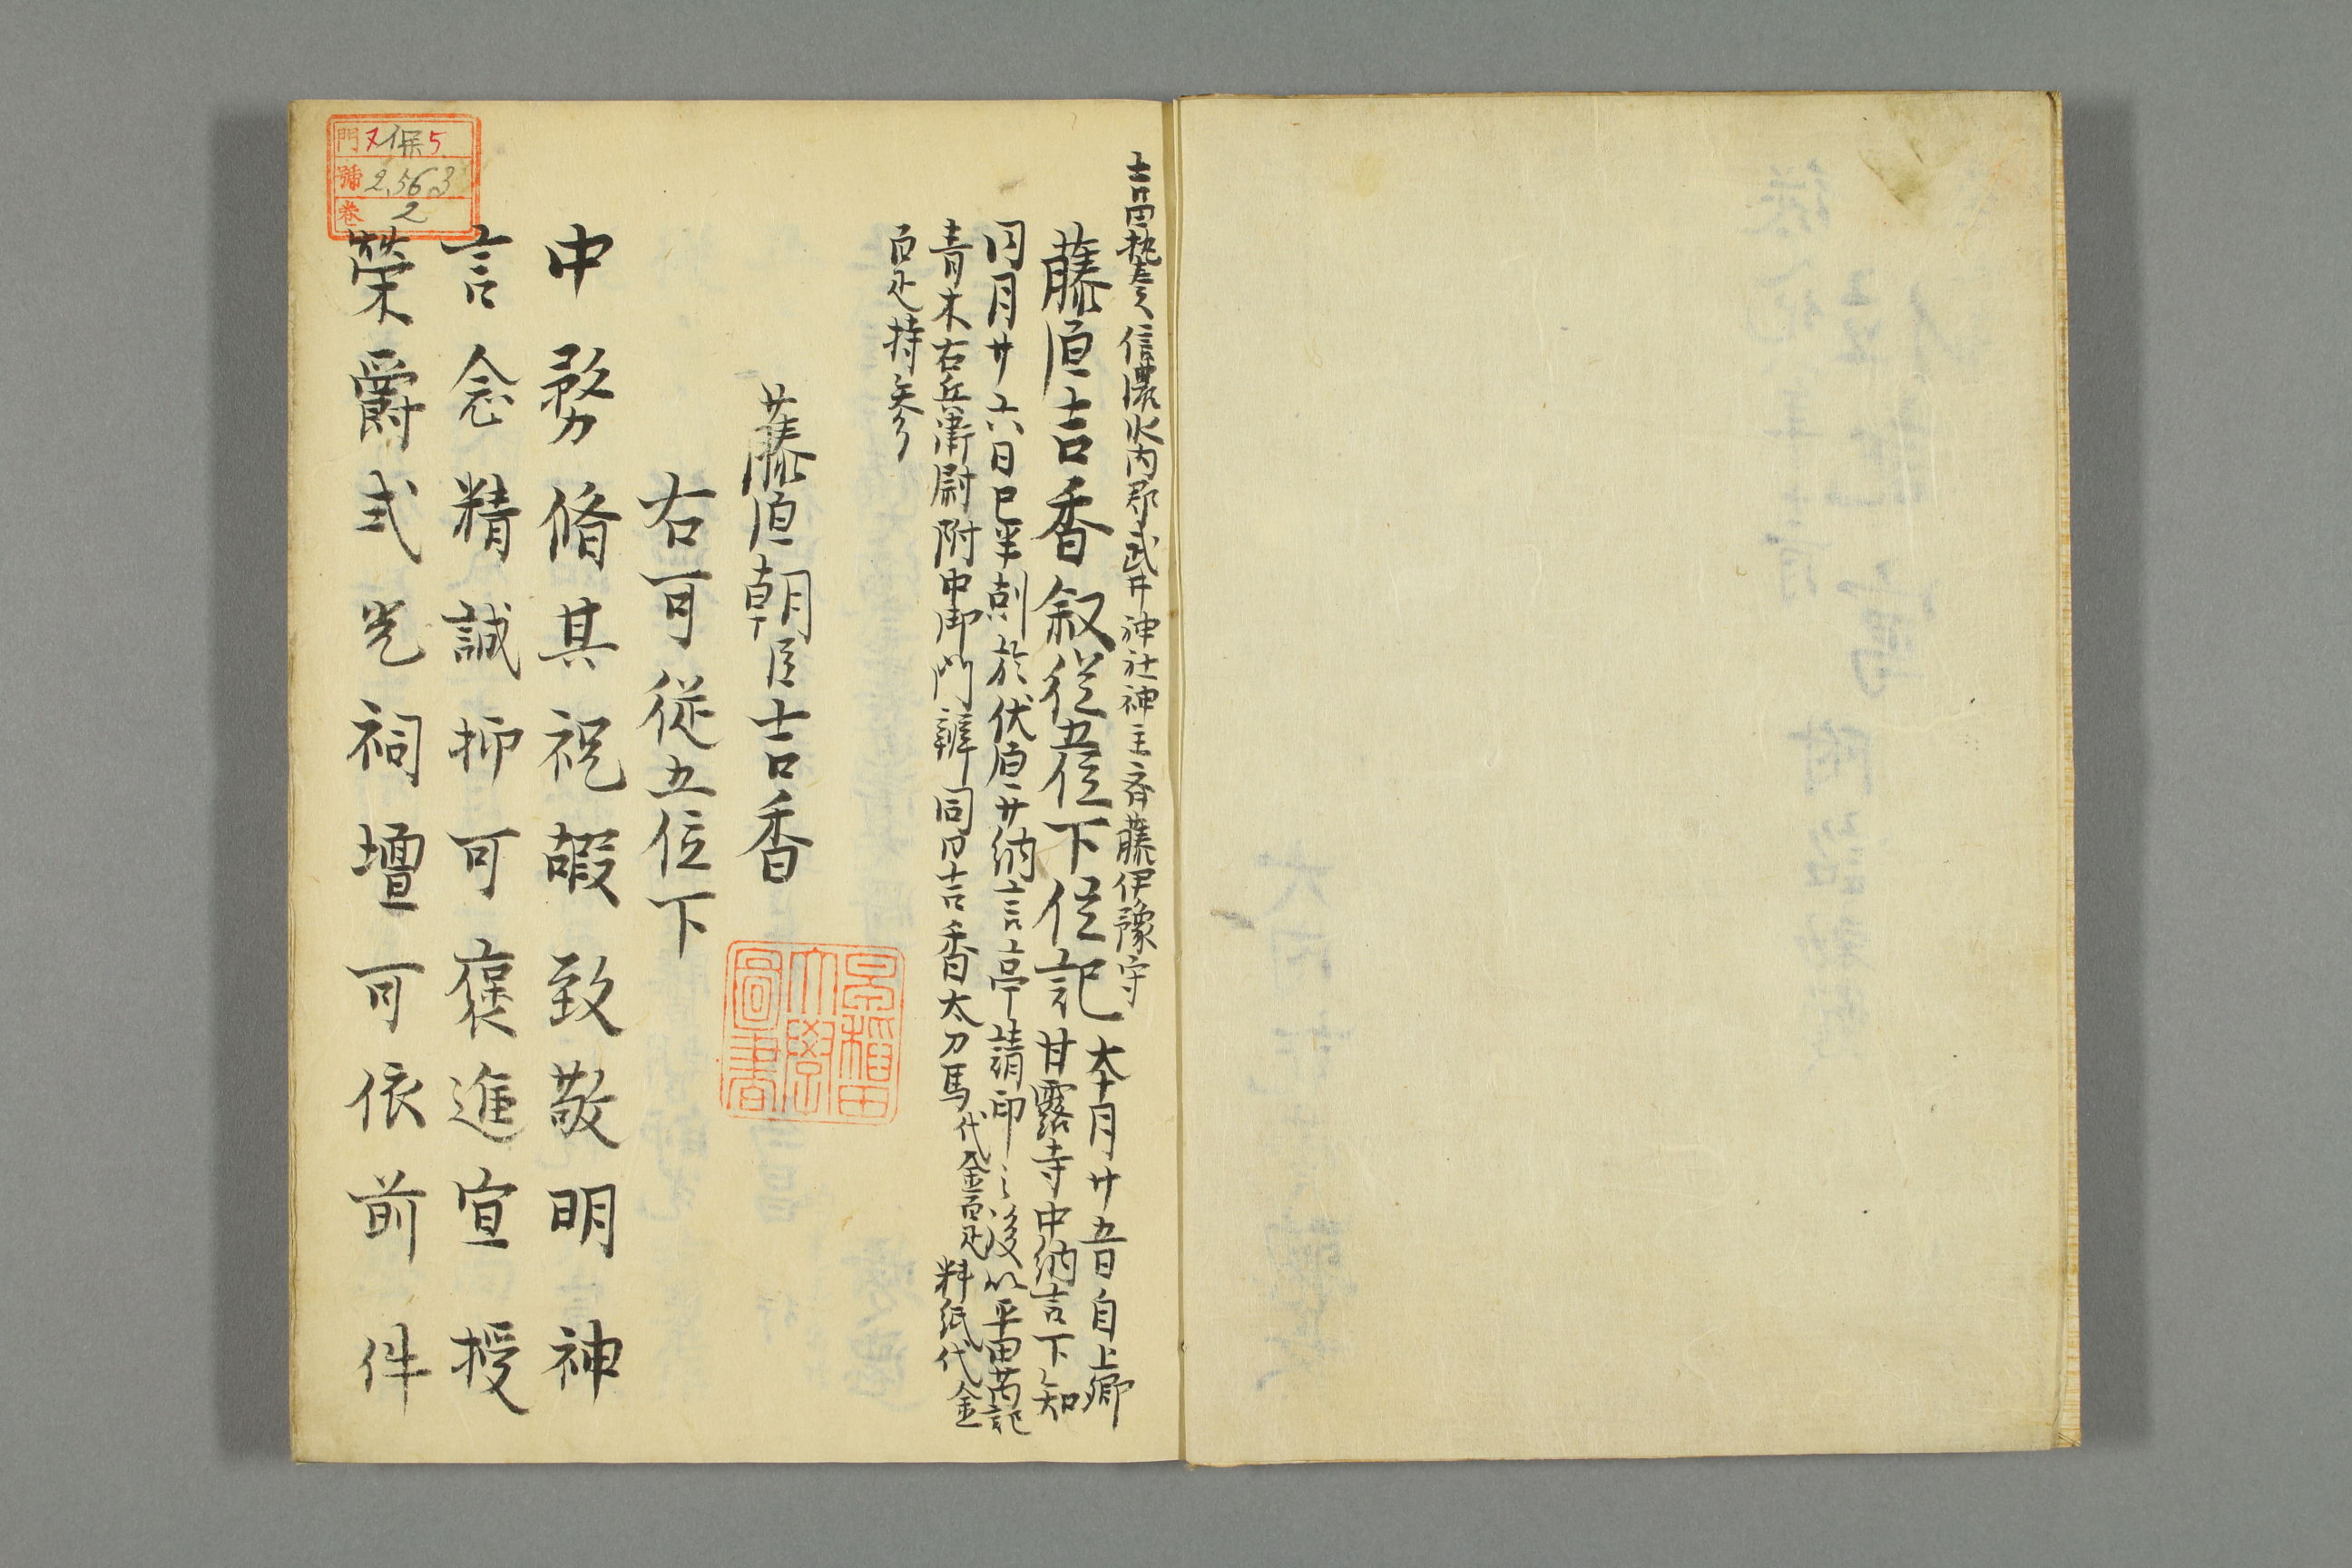 吉田執奏 信濃水内郡武井神社神主斉藤伊豫守
藤原吉香叙従五位下位記
十月廿五日自上卿
甘露寺中納言下知
同月廿六日巳半刻於伏原少納言亭請印之後以平田
青木右兵衛尉附中御門辨同日吉香太刀馬代金百疋料紙代金
百疋持参
藤原朝臣吉香
右可従五位下
中務脩其祝嘏致敬明神
言念精誠抑可褒進宜授
榮爵式光祠壇可依前件
早稲田大學圖書
門 又保5
號 2,563
巻 2